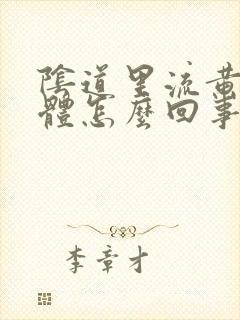 陰道里流黄
體怎麼回事
李章才